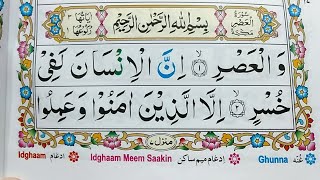 سُوْرَةُ الْعَصْرِ مَكِّيَّةٌ
بِسْمِ اللّٰهِ الرَّحْمٰنِ الرَّحِيْمِ
وَالْعَصْرِ ۙ﴿۱﴾ اِنَّ الْاِنْسَانَ لَفِیْ
خُسْرٍ ۙ﴿۲﴾ اِلَّا الَّذِیْنَ اٰمَنُوْا وَعَمِلُوا
منزل ۷
Idghaam ادغام Idghaam Meem Saakin ادغام میم ساکن Ghunna غُنّہ